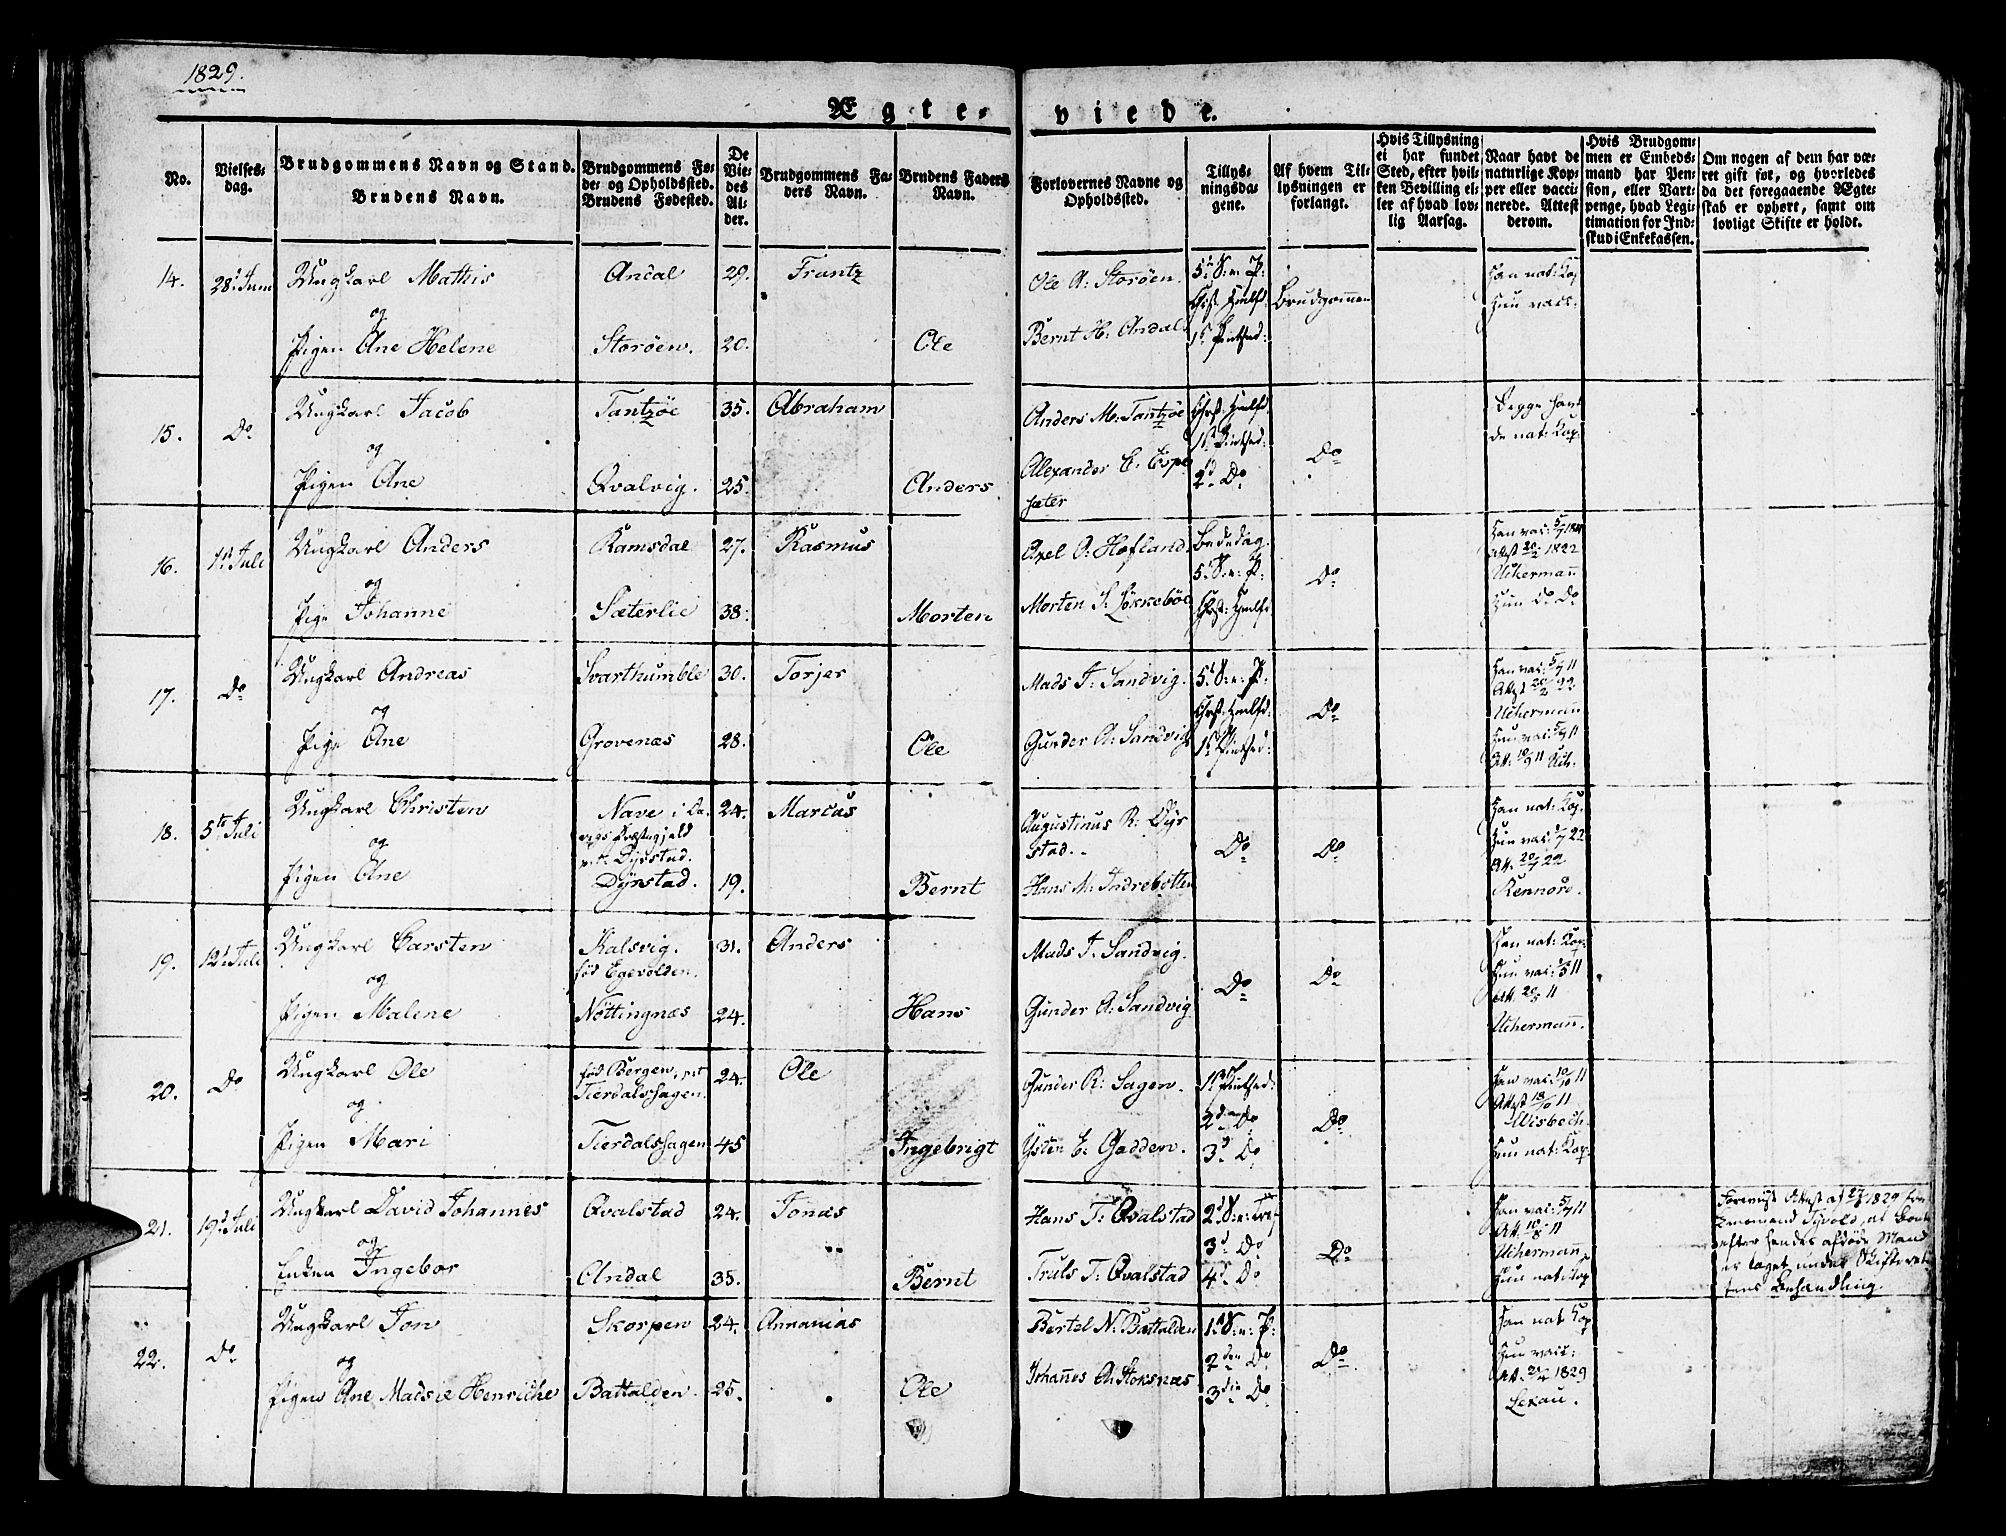 1829.
Ægte-
viede.
No.
Vielses-
dag.
Brudgommens Navn og Stand.
Brudens Navn.
Brudgommens Fø-
de- og Opholdssted.
Brudens Fødested.
De
Vie-
des
Al-
der.
Brudgommens Fa-
ders Navn.
Brudens Faders
Navn.
Forlovernes Navne og
Opholdssted.
Tillys-
ningsda-
gene.
Af hvem Til-
lysningen er
forlangt.
Hvis Tillysning
ei har fundet
Sted, efter hvil-
ken Bevilling el-
ler af hvad lov-
lig Aarsag.
Naar havt de
naturlige Kop-
per eller vacci-
nerede. Attest
derom.
Hvis Brudgom-
men er Embeds-
mand har Pen-
sion, eller Vart-
penge, hvad Legi-
timation for Ind-
skud i Enkekassen.
Om nogen af dem har væ-
ret gift før, og hvorledes
da det foregaaende Ægte-
skab er ophørt, samt om
lovligt Skifte er holdt.
14.
28. Juni
Ungkarl Mathis
og
Pigen Ane Helene
Andal
Storøen.
29.
20.
Frantz
Ole
Ole A: Storøen.
Bernt H: Andal.
5. S: e: P:
Chrst. Hmlfd
1st Pintsed:
Brudgommen
Han nat: Kop
Hun vacc:
15.
Do
Ungkarl Jacob
og
Pigen Ane
Tantzøe
Qvalvig.
35.
25.
Abraham
Anders.
Anders M: Tantzøe
Alexander E. Espe
sæter
Chrst. Hmlfd
1st Pintsed:
2d Do
Do
Begge havt
de nat: Kop.
16.
1st Juli
Ungkarl Anders
og
Pige Johanne
Ramsdal
Sæterlie
27.
38.
Rasmus
Morten
Axel O: Hofland.
Morten S. Løkkebøe
Bededag.
5. S: e: P:
Chrst: Hmlfd
Do
Attest 20/2 1822
Uchermann
Hun Do Do
17.
Do
Ungkarl Andreas
og
Pige Ane
Svarthumble
Grovenæs
30.
28.
Torjer
Ole
Mads J. Sandvig.
Gunder A: Sandvig
5. S: e: P:
Chrst. Hmlfd:
1st Pintsed:
Do
Han vac: 5/7 11
Attest 20/2 22
Uchermann
Hun vac: 5/9 11
Att: 10/9 11 Uch.
18.
5te Juli
Ungkarl Christen
og
Pigen Ane
Nave i Da-
vigs Præstegjeld
p.t. Dyrstad.
Dyrstad.
24.
19.
Marcus
Bernt
Augustinus R: Dyr
stad.-
Hans M: Indrebotten
Do
Do
Han nat: Kop.
Hun vac: 1/7 22
Att: 20/7 22
Rennord.
19.
12. Juli
Ungkarl Carsten
og
Pigen Malene
Kalsvig.
fød Egevolden.
Nøttingnæs
31.
24.
Anders
Hans
Mads J. Sandvig.
Gunder A: Sandvig
Do
Do
Han nat: Kop.
Hun vac: 1/5 11
Att: 20/5 11
Uchermann.
20.
Do
Ungkarl Ole
og
Pigen Mari
fød Bergen, p.t
Tierdalshagen.
Tierdalshagen
24.
45
Ole
Ingebrigt
Gunder R: Sagen.
Ysten E. Gadden.
1st Pintsed:
2den Do
3d Do
Do
Han vac: 10/10 11
Attest 18/10 11
Wisbech.
Hun nat: Kop.
21.
19d Juli
Ungkarl David Johannes
og
Enken Ingebor
Qvalstad
Andal
24.
35.
Jonas
Bernt
Hans J: Qvalstad
Truls J: Qvalstad
2d S: e: Tref
3d Do
4d Do
Do
Han vac: 5/7 11
Att: 10/8 11
Uchermann
Hun nat: Kop
Forevist Attest af 27/5 1829 fra
Lensmand Tysvold, at Boet
efter hendes afdøde Mand
er taget under Skifteret-
tens Behandling.
22.
Do
Ungkarl Jon
og
Pigen Ane Madsie Henriche
Skorpen
Battalden.
24.
25.
Annanias
Ole
Bertel N: Battalden
Johanes A: Stoksnæs
1. S: e: P:
2den Do
3die Do
Do
Han nat Kop
Hun vacc:
Att. 2/4 1829
Lexau.